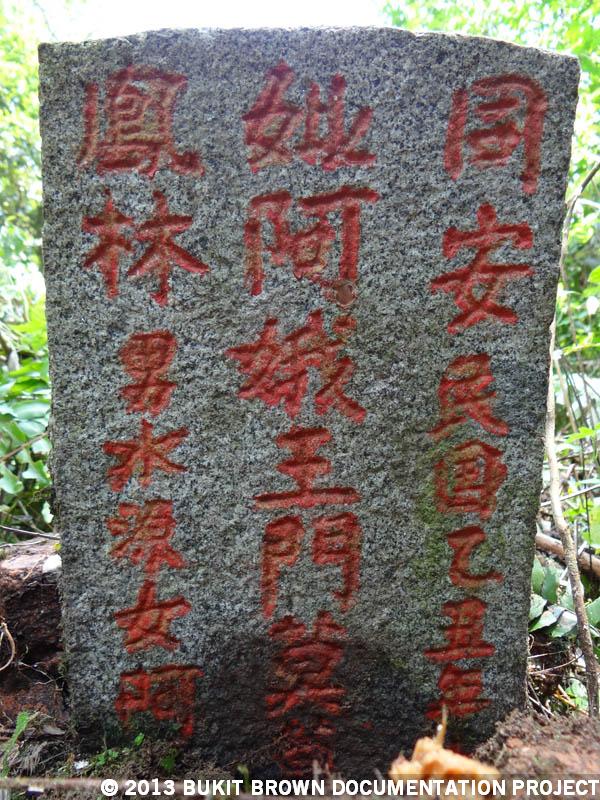 同安民國乙丑年
妣阿娥王門莫
鳳林男水源女阿
© 2013 BUKIT BROWN DOCUMENTATION PROJECT